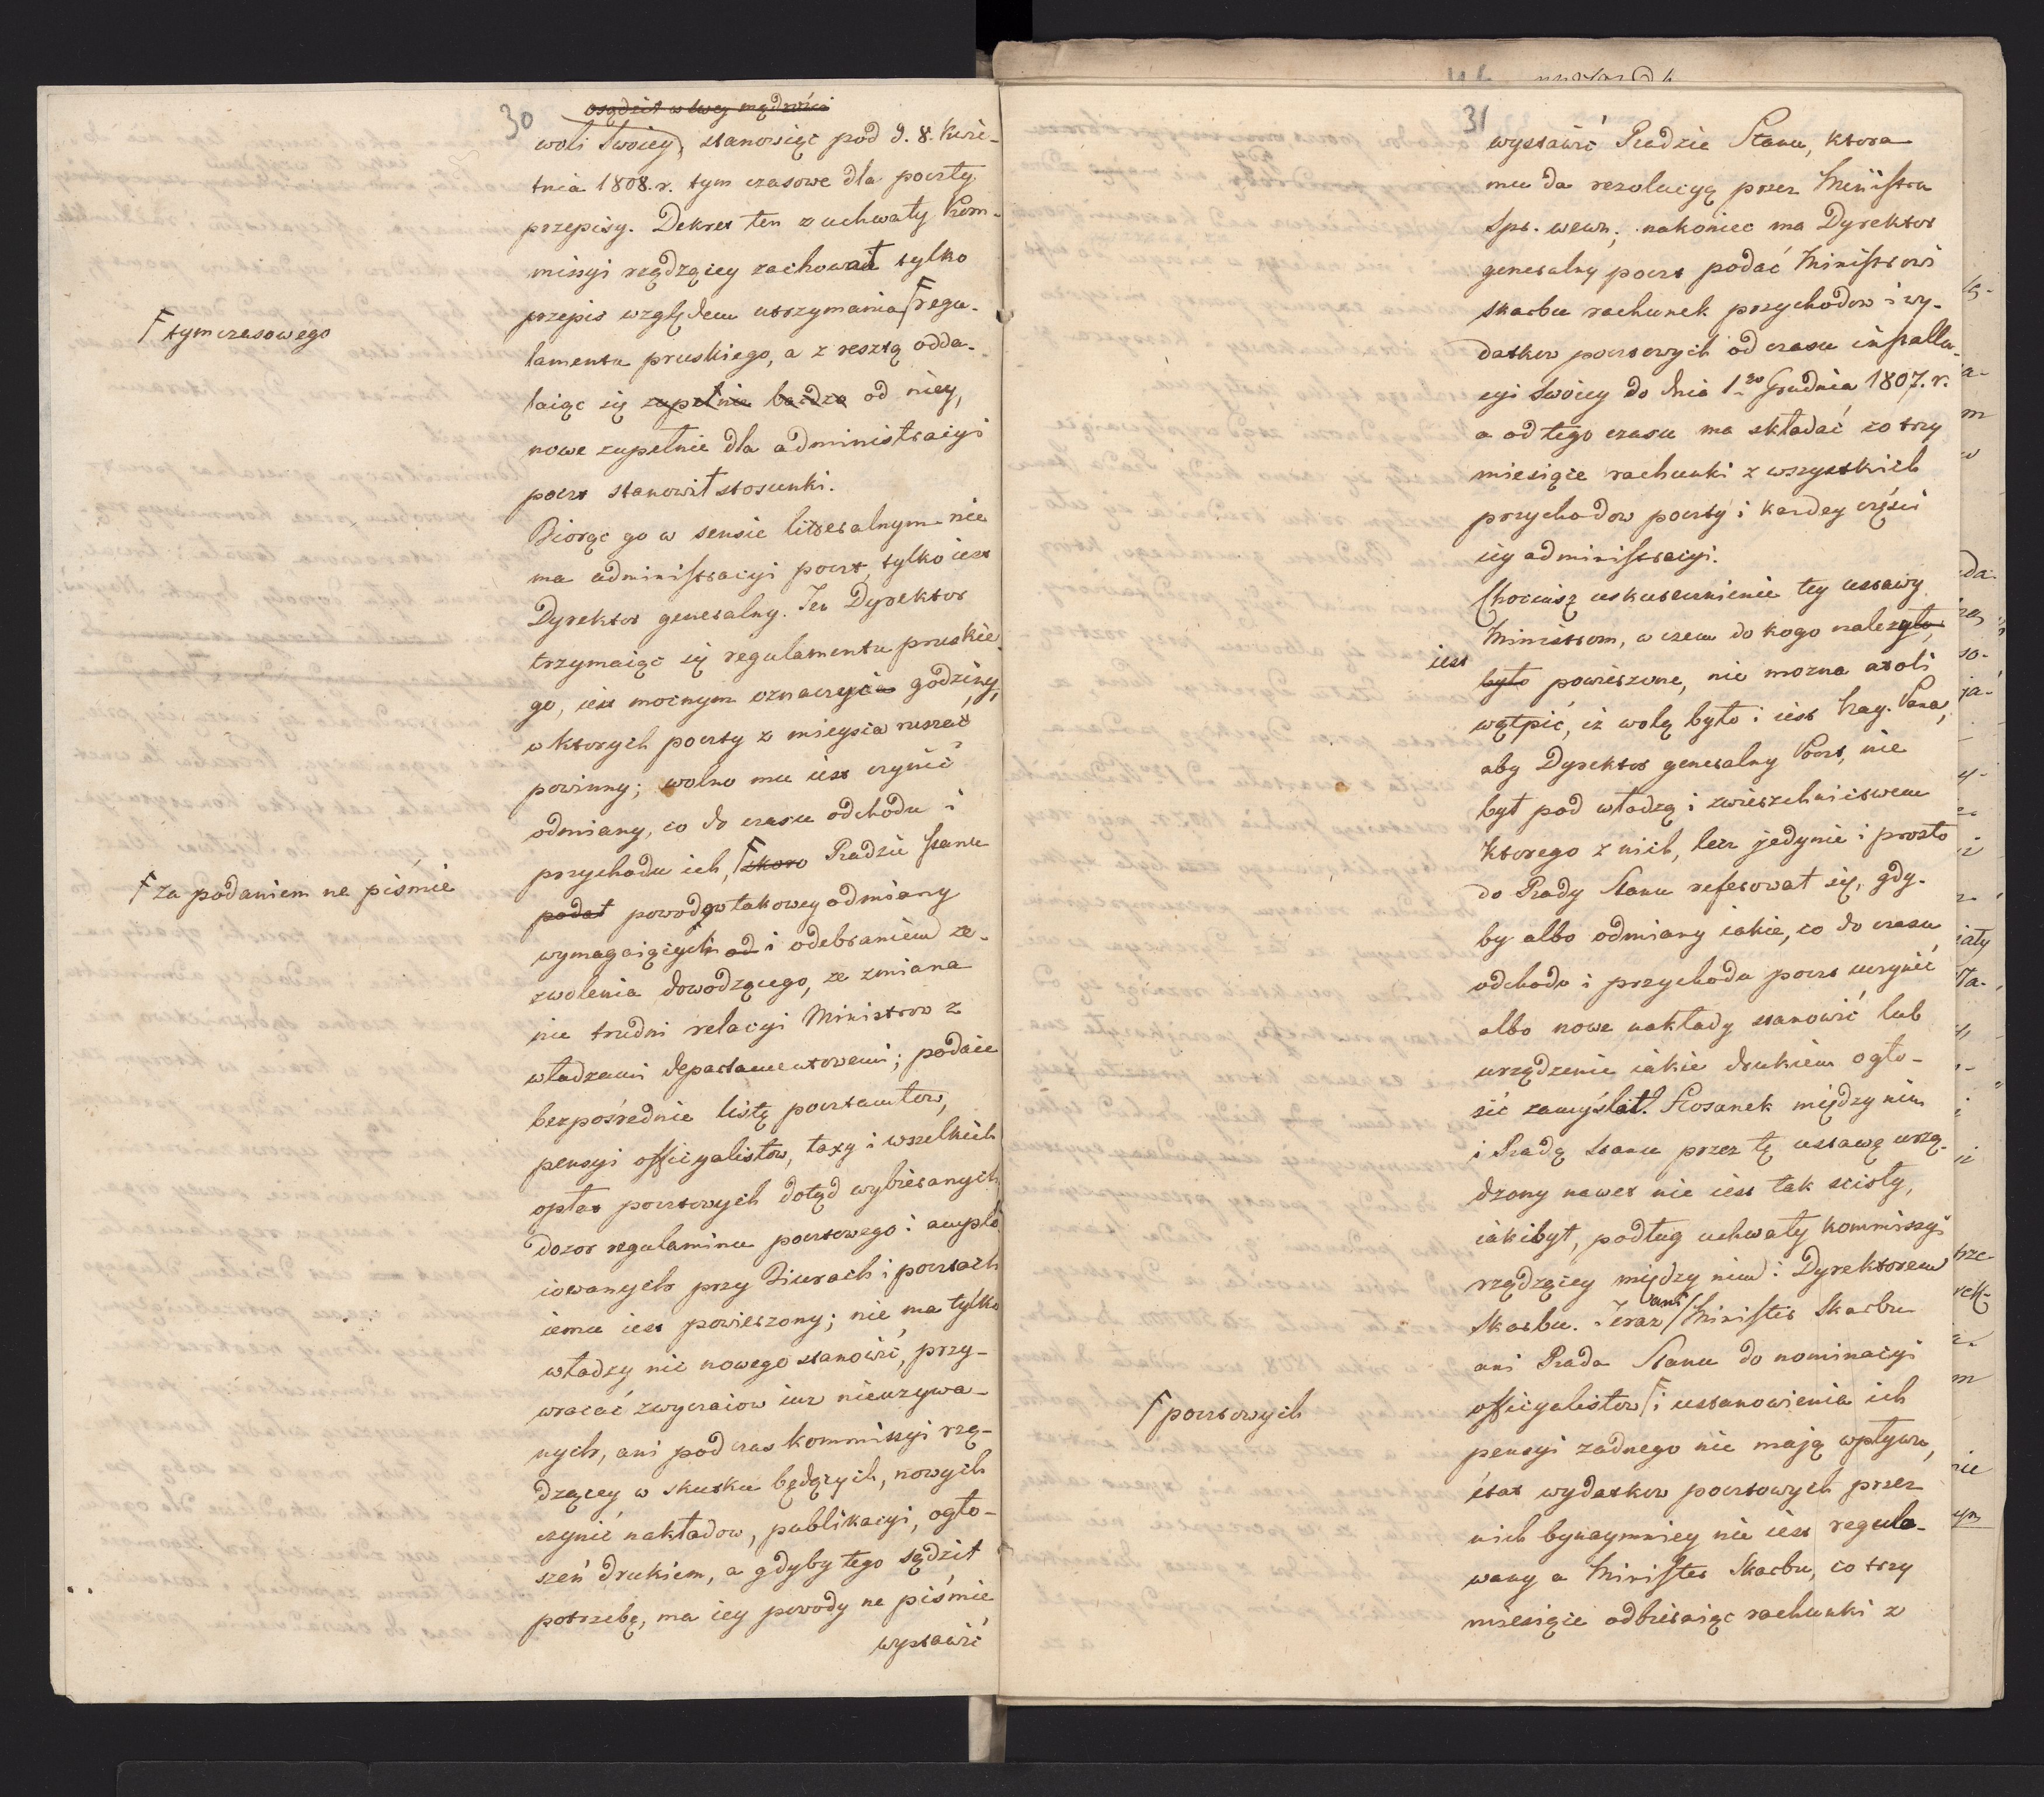 30
osądził w swey mądrości
woli Swoiey, stanowiąc pod d. 8. Kwie-
tnia 1808. r. tym czasowe dla poczty
przepisy. Dekret ten z uchwały Kom-
missyi rządzącey zachował tylko
przepis względem utrzymania Γ regu-
Γ tymczasowego
lamentu pruskiego, a z resztą odda-
laiąc się zupełnie bardzo od niey,
nowe zupełnie dla administracyi
poczt stanowił stosunki.
Biorąc go w sensie litteralnym nie
ma administracyi poczt, tylko iest
Dyrektor generalny. Ten Dyrektor
trzymaiąc się regulamentu pruskie-
go, iest mocnym oznaczyć godziny,
w ktorych poczty z mieysca ruszać
powinny; wolno mu iest czynić
odmiany, co do czasu odchodu i
przychodu ich, Γ skoro Radzie Stanu
Γ za podaniem na piśmie
podał powodow takowey odmiany
wymagaiących od i odebraniem ze-
zwolenia dowodzącego, ze zmiana
nie trudni relacyi Ministrow z
władzami departamentowemi; podaie
bezpośrednie listę pocztamtow,
pensyi officyalistow, taxy i wszelkich
opłat pocztowych dotąd wybieranych
dozor regulaminu pocztowego i amplo-
iowanych przy Biurach i pocztach
iemu iest powierzony; nie ma tylko
władzy nic nowego stanowić, przy-
wracać zwyczaiow iuz nieuzywa-
nych, ani pod czas kommissyi rzą-
dzącey w skutku będących, nowych
czynić nakładow, publikacyi, ogło-
szeń drukiem, a gdyby tego sądził
potrzebę, ma iey powody na piśmie
wystawić
31
wystawić Radzie Stanu, ktora
mu da rezolucyą przez Ministra
Spr. wewn; nakoniec ma Dyrektor
generalny poczt podać Ministrowi
skarbu rachunek przychodow i wy-
datkow pocztowych od czasu installa-
cyi Swoiey do dnia 1go Grudnia 1807. r.
a od tego czasu ma składać co trzy
miesiące rachunki z wszystkich
przychodow poczty i kazdey części
iey administracyi.
Chociasz uskutecznienie tey ustawy
Ministrom, w czem do kogo nalezało,
iest
było powierzone, nie mozna atoli
wątpić, iz wolą było i iest Nay. Pana,
aby Dyrektor generalny Poczt, nie
był pod władzą i zwierzchnictwem
ktorego z nich, lecz jedynie i prosto
do Rady Stanu referował się, gdy-
by albo odmiany iakie, co do czasu
odchodu i przychodu poczt uczynić
albo nowe nakłady stanowić lub
urządzenie iakie drukiem ogło-
sić zamyślał. Stosunek między nim
i Radą Stanu przez tę ustawę urzą-
dzony nawet nie iest tak scisły,
iaki był, podług uchwały kommissyi
rządzącey między nim i Dyrektorem
Skarbu. Teraz ani Minister Skarbu
ani Rada Stanu do nominacyi
officyalistow Γ i ustanowienia ich
Γ pocztowych
pensyi zadnego nie mają wpływu,
etat wydatkow pocztowych przez
nich bynaymniey nie iest regulo-
wany a Minister Skarbu, co trzy
miesiące odbieraiąc rachunki z